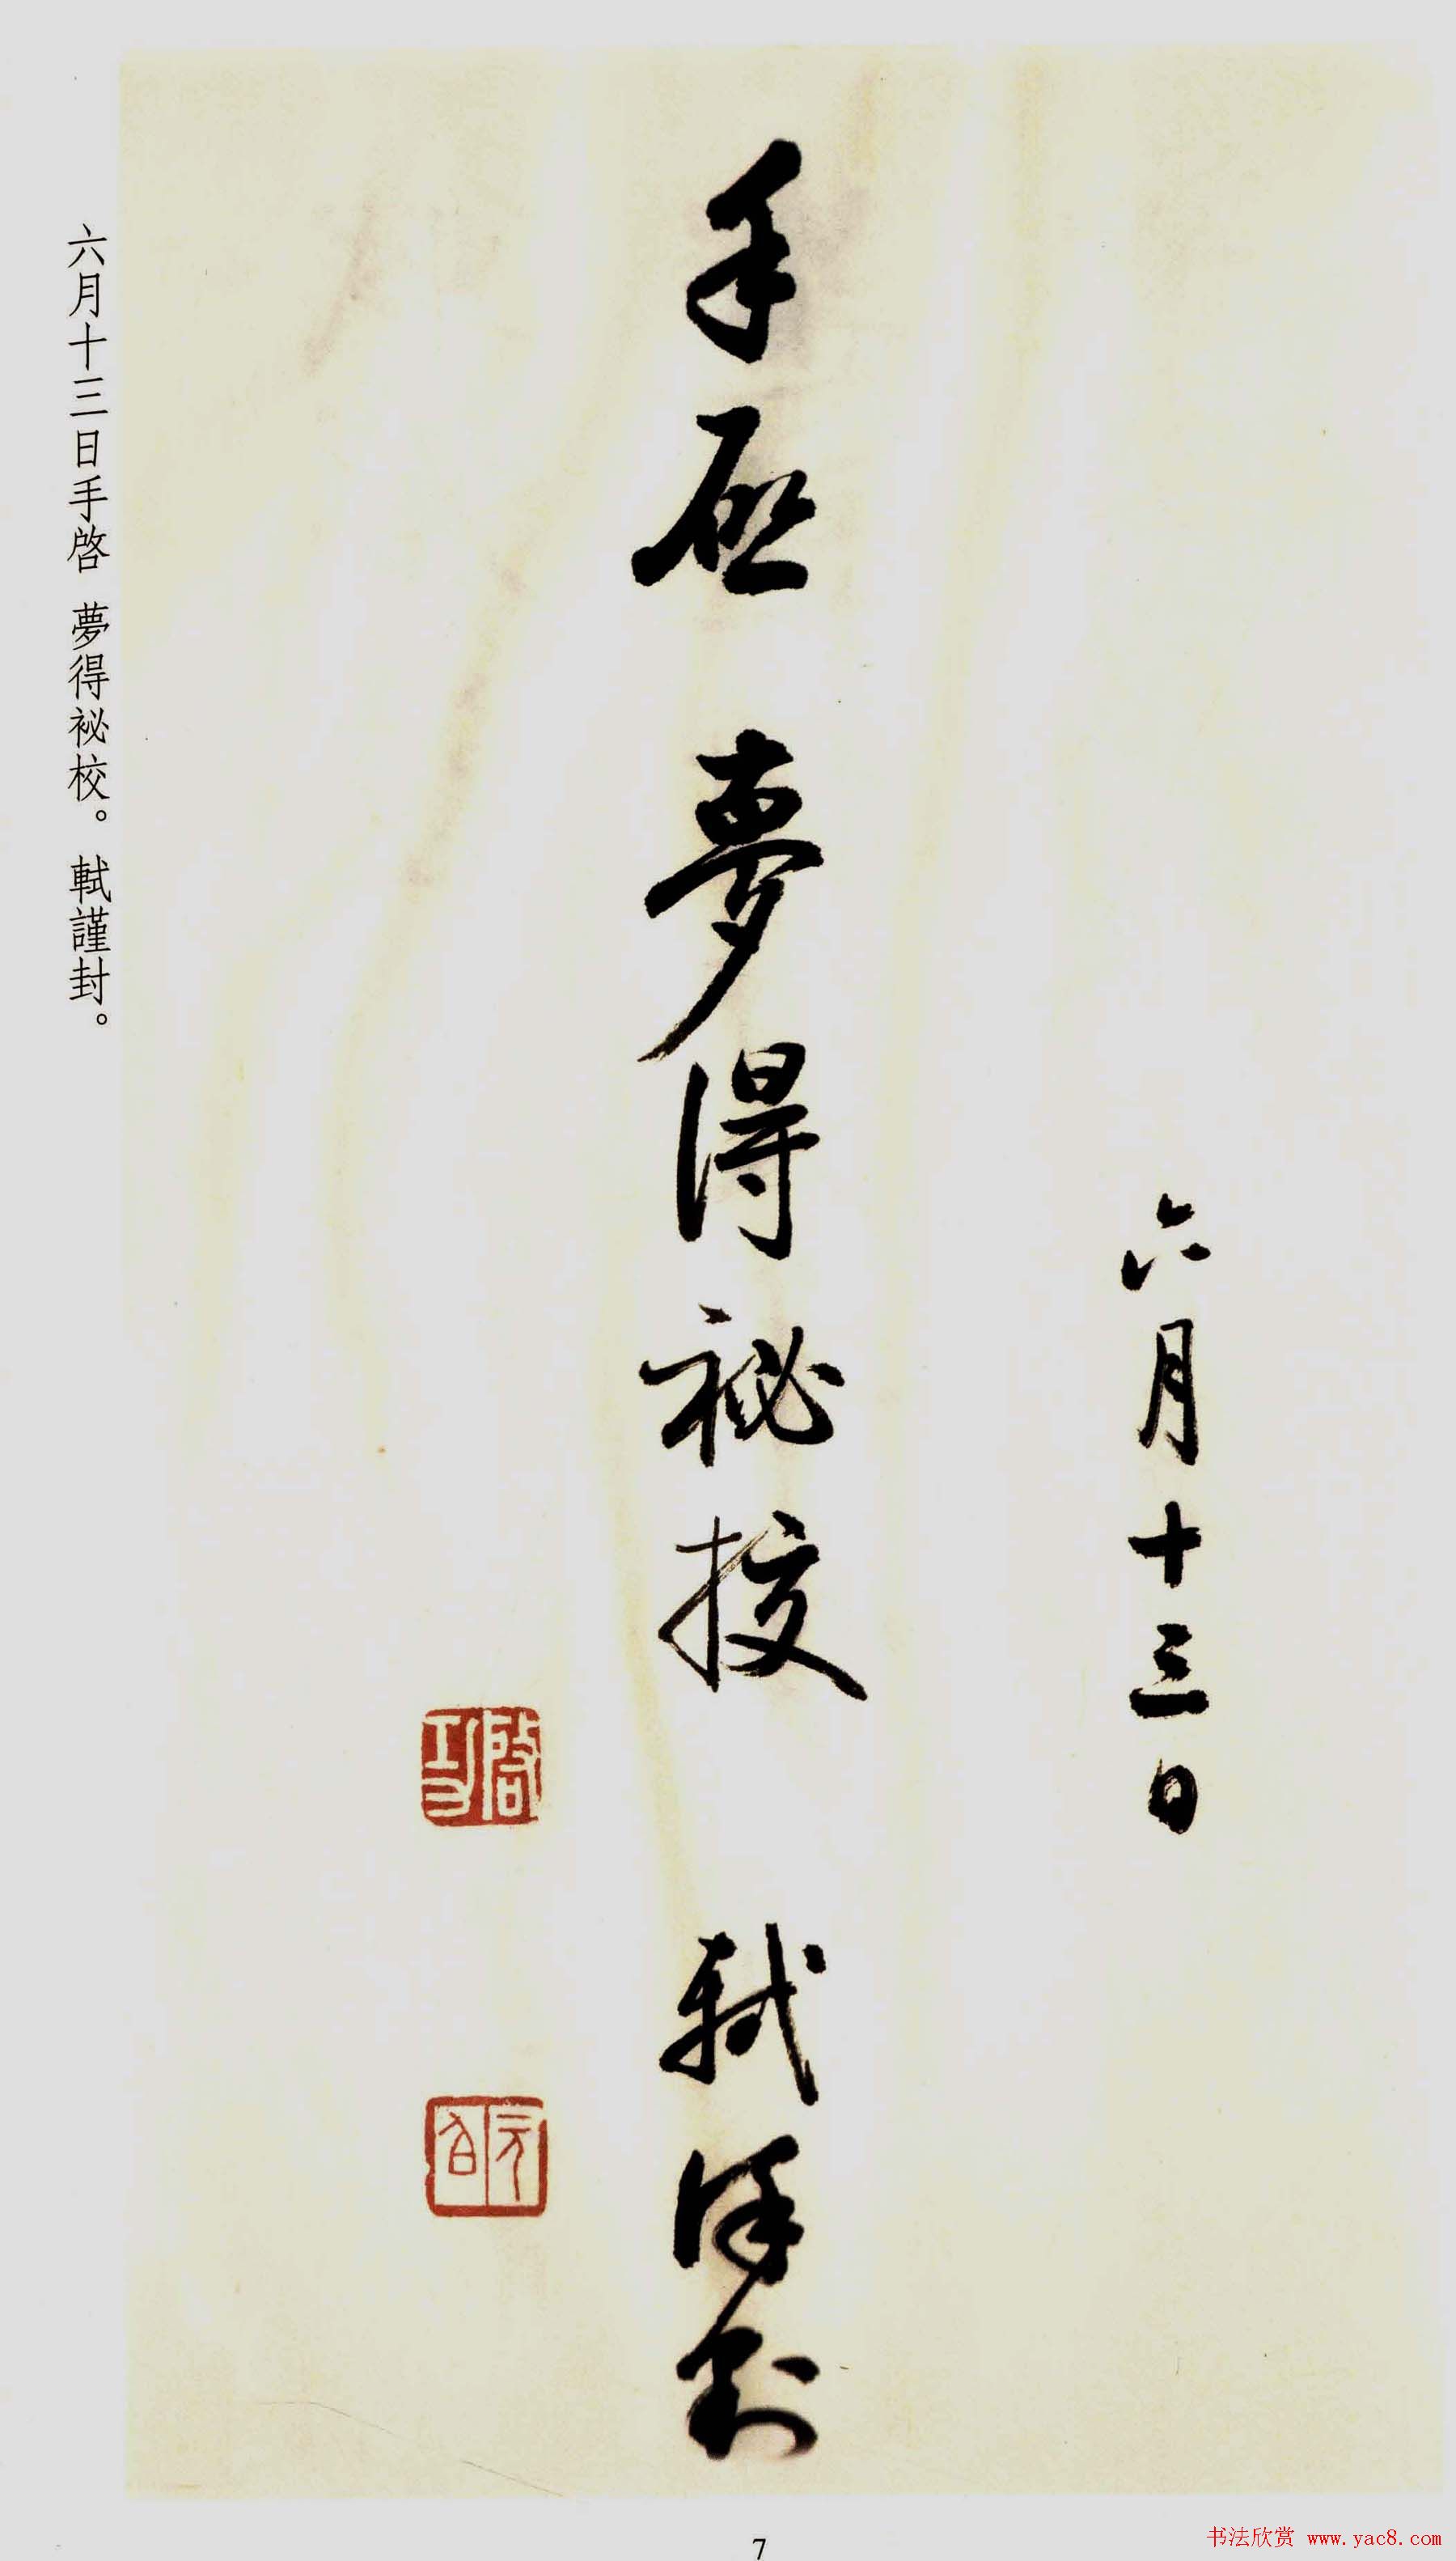 六月十三日
手啟 夢得祕校 軾謹封
啟功
元白
六月十三日手啓 夢得祕校。 軾謹封。
7
书法欣赏 www.yac8.com